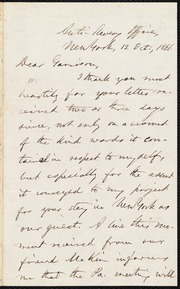 Anti-Slavery Office,
New York, 12 Oct., 1866
Dear Garrison,
I thank you most
heartily for your letter re-
ceived two or three days
since, not only on account
of the kind words it con-
tained in respect to myself,
but especially for the assent
it conveyed to my project
for your stay in New York as
our guest. A line this mo-
ment received from our
friend McKim informs
me that the Pa. meeting will